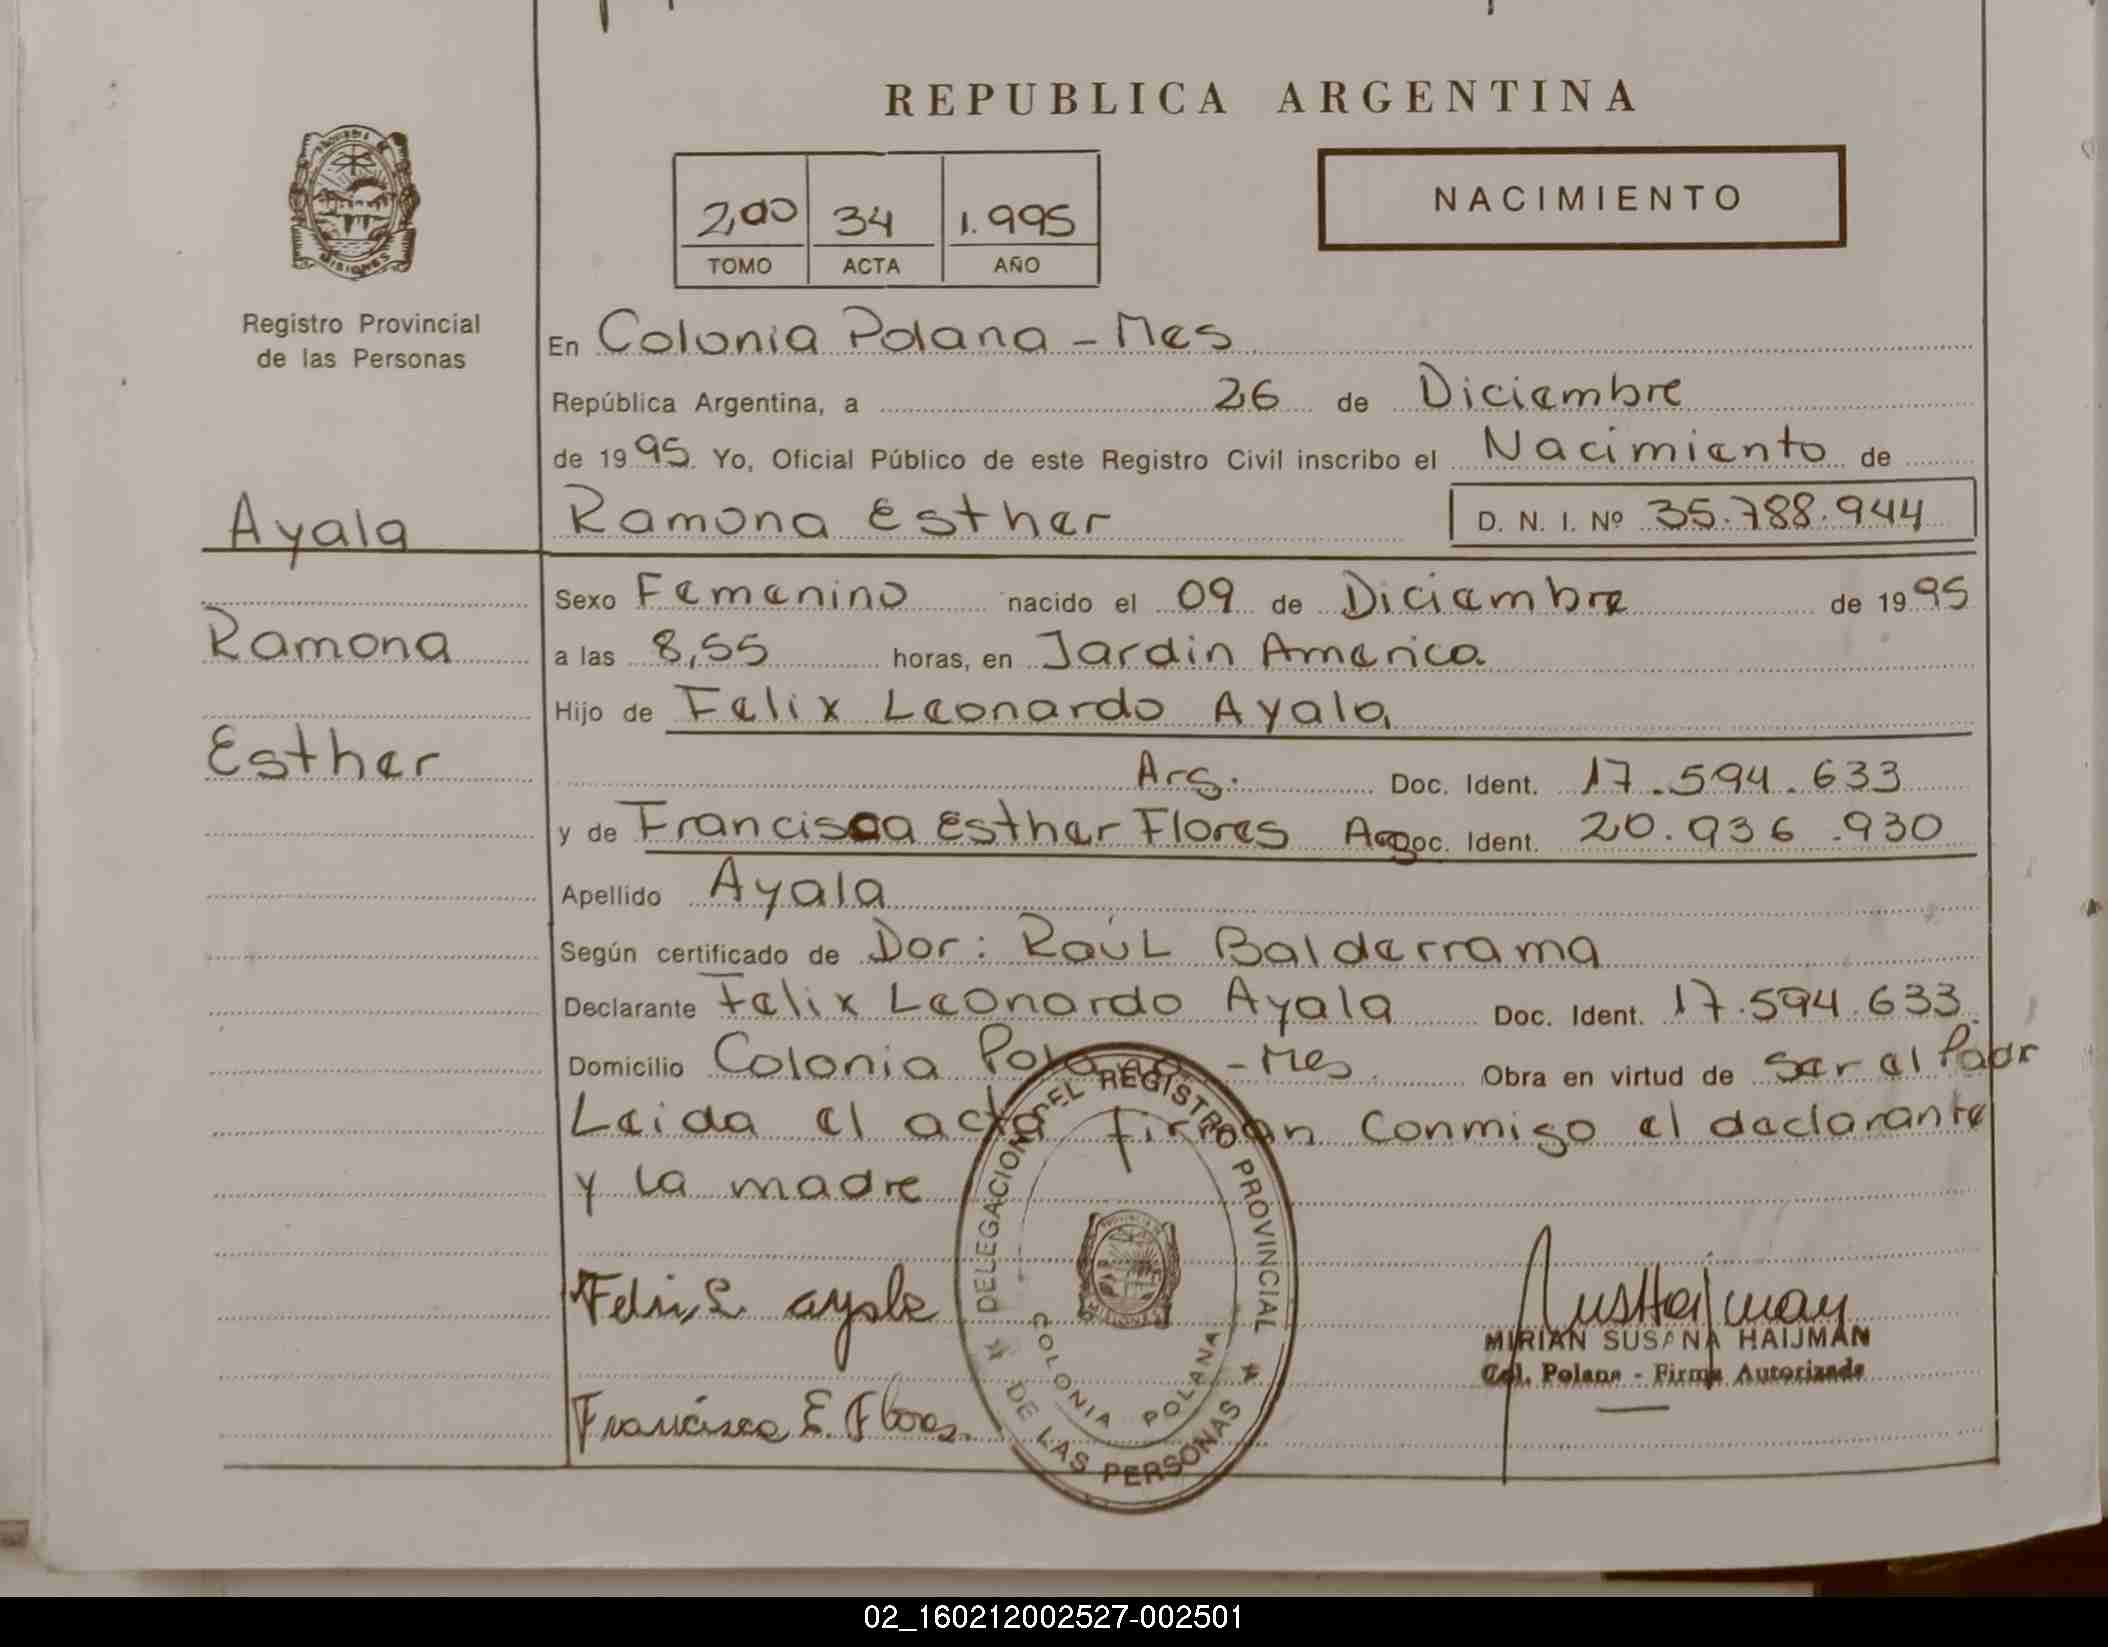 REPUBLICA ARGENTINA
NACIMIENTO
2,00 34 1.995
TOMO ACTA AÑO
PROVINCIA DE
MISIONES
Registro Provincial
de las Personas
En Colonia Polana - Mes
República Argentina, a 26 de Diciembre
de 1995. Yo, Oficial Público de este Registro Civil inscribo el Nacimiento de
Ayala
Ramona Esther D. N. I. Nº 35.788.944
Sexo Femenino nacido el 09 de Diciembre de 1995
Ramona
a las 8,55 horas, en Jardin America
Hijo de Felix Leonardo Ayala
Esther
Arg. Doc. Ident. 17.594.633
y de Francisca Esther Flores Arg Doc. Ident. 20.936.930
Apellido Ayala
Según certificado de Dor: Raúl Balderrama
Declarante Felix Leonardo Ayala Doc. Ident. 17.594.633
Domicilio Colonia Polana - Mes Obra en virtud de ser el Padr
Leida el acta firman conmigo el declarante
y la madre
DELEGACION DEL REGISTRO PROVINCIAL
DE LAS PERSONAS
COLONIA POLANA
Felix L ayala
MIRIAN SUSANA HAIJMAN
Col. Polana - Firma Autorizada
Francisca E. Flores.
02_160212002527-002501